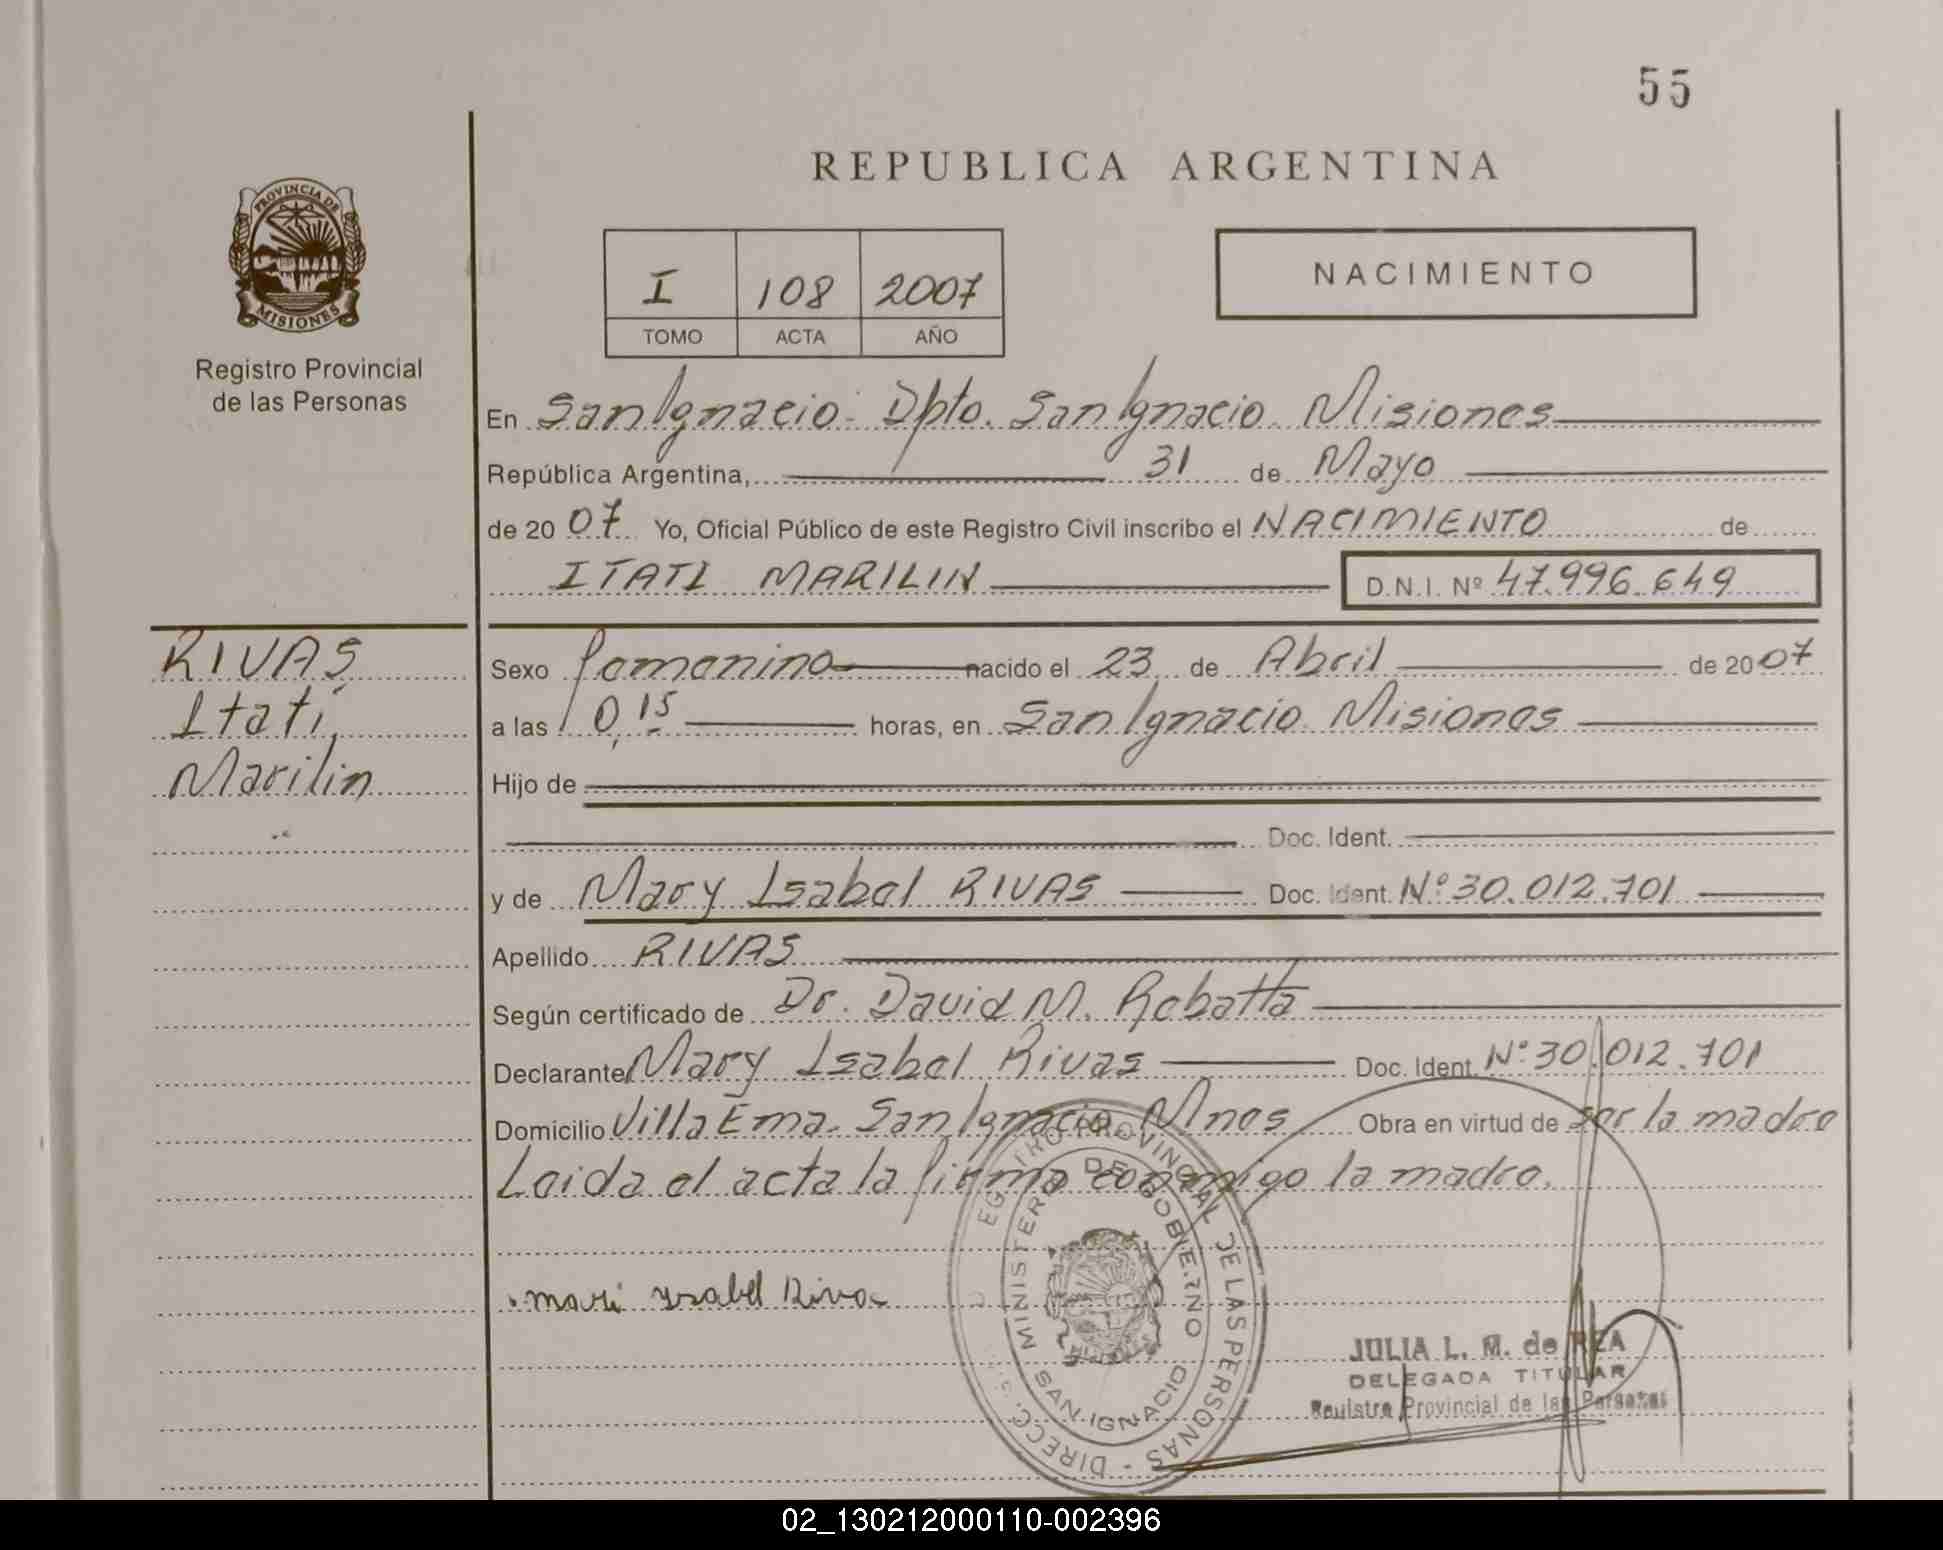 55
REPUBLICA ARGENTINA
PROVINCIA DE
MISIONES
Registro Provincial
de las Personas
I 108 2007
TOMO ACTA AÑO
NACIMIENTO
En San Ignacio Dpto. San Ignacio Misiones
República Argentina, 31 de Mayo
de 2007 Yo, Oficial Público de este Registro Civil inscribo el NACIMIENTO de
ITATI MARILIN D.N.I. Nº 47.996.649
RIVAS
Itatí
Marilin
Sexo femenino nacido el 23 de Abril de 2007
a las 0,15 horas, en San Ignacio Misiones
Hijo de
Doc. Ident.
y de Mary Isabel RIVAS Doc. Ident. Nº 30.012.701
Apellido RIVAS
Según certificado de Dr. David M. Robatta
Declarante Mary Isabel Rivas Doc. Ident. Nº 30.012.701
Domicilio Villa Ema. San Ignacio Mnes Obra en virtud de ser la madre
Leida el acta la firma conmigo la madre.
mari ysabel Rivas
REGISTRO PROVINCIAL DE LAS PERSONAS - DIRECC.
MINISTERIO DE GOBIERNO
SAN IGNACIO
JULIA L. M. de REA
DELEGADA TITULAR
Registro Provincial de las Personas
02_130212000110-002396